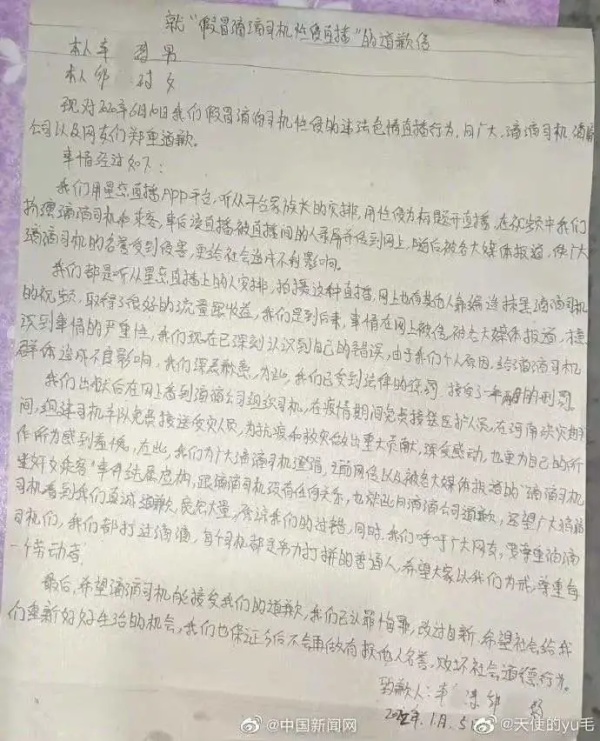 就“假冒滴滴司机性侵直播”的道歉信
本人 男
本人 女
现对2020年6月10日我们假冒滴滴司机性侵的违法色情直播行为,向广大滴滴司机、滴滴
公司以及网友们郑重道歉。
事情经过如下:
我们用星恋直播APP平台,听从平台家族长的安排,用性侵为标题开直播,在视频中我们
扮演滴滴司机和乘客,事后该直播被直播间的人录屏并传到网上,随后被各大媒体报道,使广大
滴滴司机的名誉受到侵害,更给社会造成不利影响。
我们都是听从星恋直播上的人安排,拍摄这种直播,网上也有其他人靠编造抹黑滴滴司机
的视频,取得了很好的流量跟收益,我们是到后来,事情在网上被各大媒体报道,才意
识到事情的严重性,我们现在已深刻认识到自己的错误,由于我们个人原因,给滴滴司机
群体造成不良影响,我们深表歉意,为此,我们已受到法律的惩罚,接受了一年的刑罚。
我们出狱后在网上看到滴滴公司组织司机,在疫情期间免费接送医护人员,在河南洪灾期
间,组建司机车队免费接送受灾人员,为抗疫和救灾做出重大贡献,深受感动,也更为自己的所
作所为感到羞愧,在此,我们为广大滴滴司机澄清,之前网传以及被各大媒体报道的“滴滴司机
性侵女乘客”事件纯属虚构,跟滴滴司机没有任何关系,也在此向滴滴公司道歉,还望广大滴滴
司机看到我们真诚道歉,宽宏大量,原谅我们的过错,同时,我们呼吁广大网友,要尊重滴滴
司机们,我们都打过滴滴,每个司机都是努力打拼的普通人,希望大家以我们为戒,尊重每
一个劳动者。
最后,希望滴滴司机能接受我们的道歉,我们已认罪悔罪,改过自新,希望社会给我
们重新好好生活的机会,我们也保证今后不会再做有损他人名誉,败坏社会道德行为。
致歉人:
2022年1月5日
@中国新闻网
@天使的yu毛